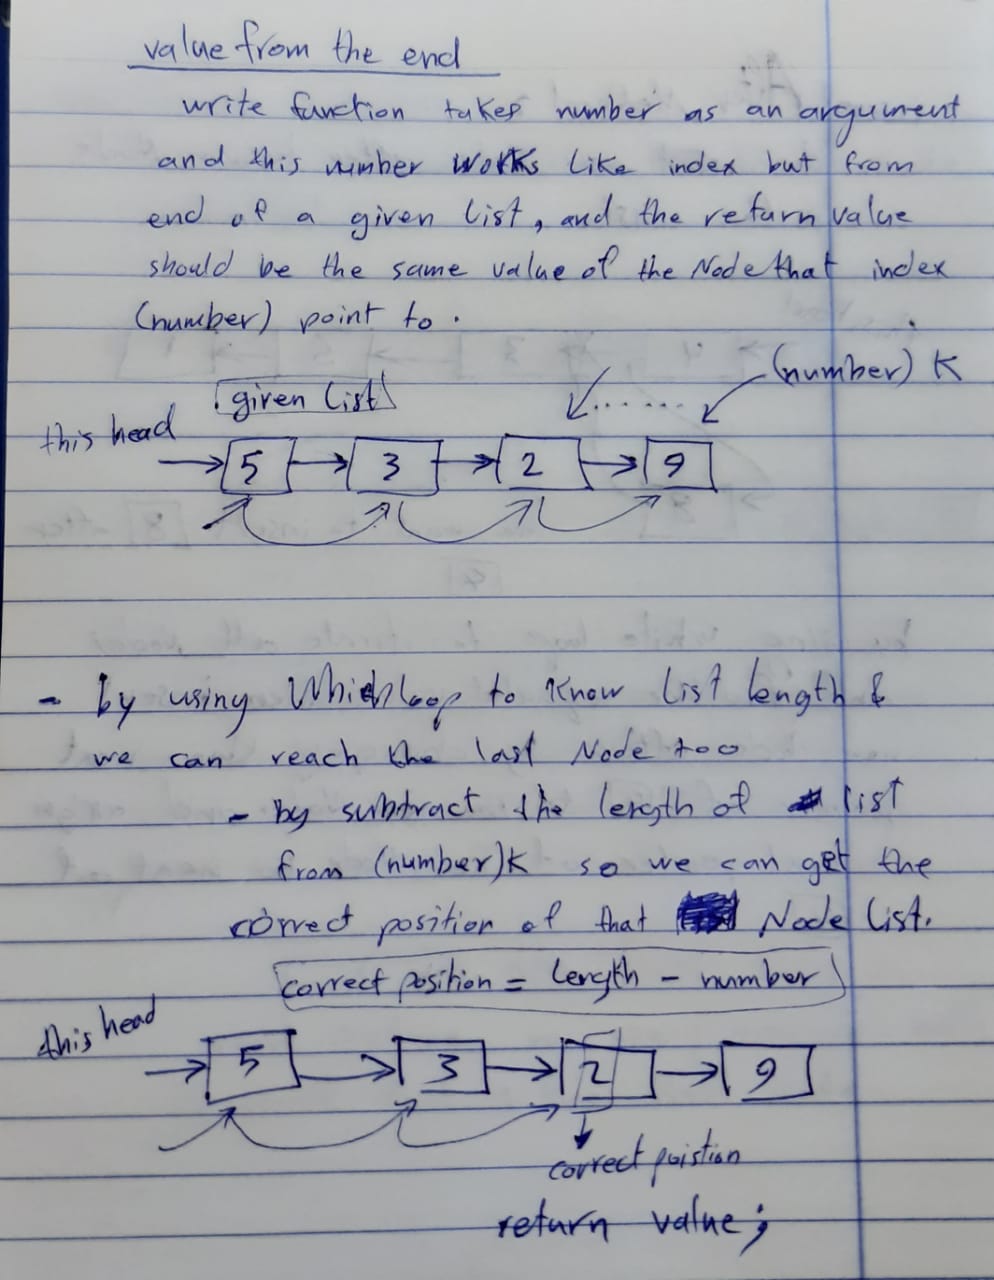 value from the end
write function takes number as an argument
and this number works like index but from
end of a given list, and the return value
should be the same value of the Node that index
(number) point to.
(number) K
given list
this head
5 3 2 9
- by using loop to know list length &
we can reach the last Node too
- by subtract the length of list
from (number)K so we can get the
correct position of that Node list.
correct position = length - number
this head
5 3 2 9
correct poistion
return value;